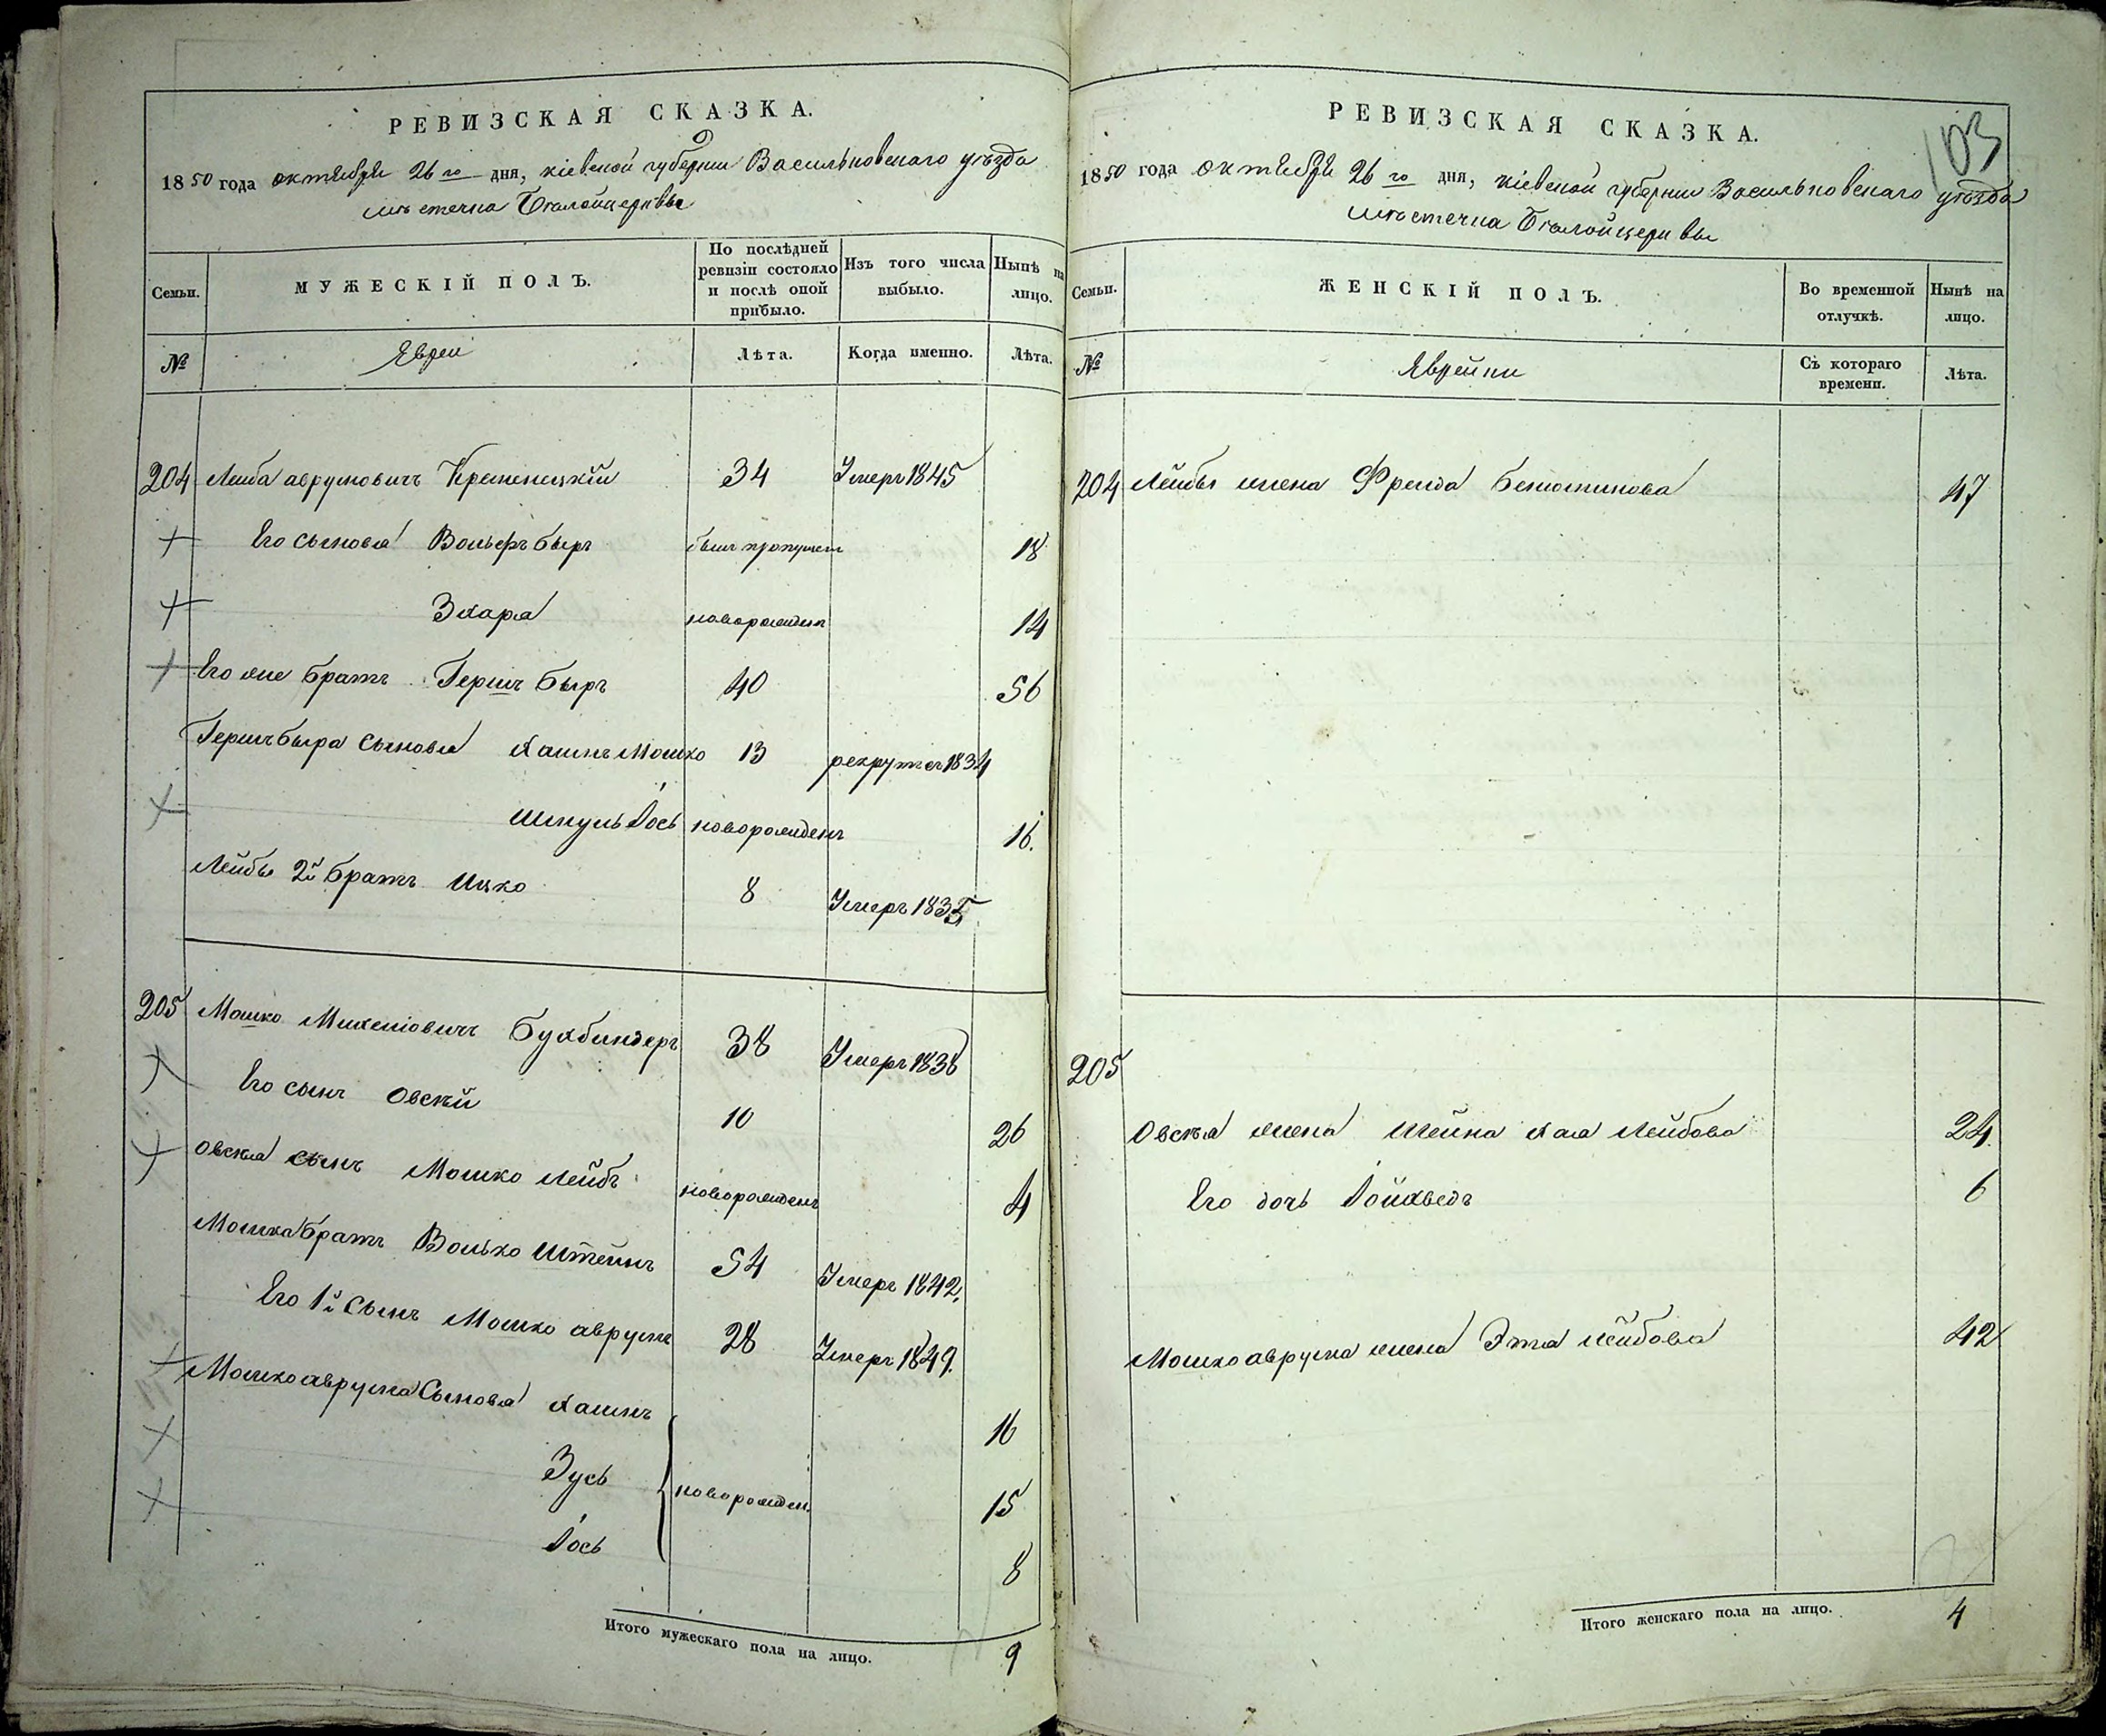 РЕВИЗСКАЯ СКАЗКА.
1850 года октября 26го дня, кіевской губерніи Васильковскаго уѣзда
мѣстечка Бѣлойцеркви
Семьи.
МУЖЕСКІЙ ПОЛЪ.
По послѣдней ревизіи состояло и послѣ оной прибыло.
Изъ того числа выбыло.
Нынѣ на лицо.
№
Евреи
Лѣта.
Когда именно.
Лѣта.
204 Лейба аврумовичъ Кременецкій 34 Умеръ 1845
Его сыновья Вольфъ быръ былъ пропущен 18
Захаря новорожденъ 14
Его же братъ Гершъ быръ 40 56
Гершъ быра сыновья Хаимъ Мошко 13 рекрутъ съ 1834
Шмуль Іось новорожденъ 16.
Лейбы 2й братъ Ицко 8 Умеръ 1835
205 Мошко Михелiовичъ Бухбиндеръ 38 Умеръ 1838
Его сынъ Овсѣй 10 26
Овсѣя сынъ Мошко Лейбъ новорожденъ 4
Мошка братъ Волько Штейнъ 54 Умеръ 1842.
Его 1й сынъ Мошко аврумъ 28 Умеръ 1849.
Мошко аврума Сыновья Хаимъ 16
Зусь новорожден. 15
Іось 8
Итого мужескаго пола на лицо. 9
РЕВИЗСКАЯ СКАЗКА.
103
1850 года октября 26го дня, кіевской губерніи Васильковскаго уѣзда
мѣстечка Бѣлойцеркви
Семьи.
ЖЕНСКІЙ ПОЛЪ.
Во временной отлучкѣ.
Нынѣ на лицо.
№
Еврейки
Съ котораго времени.
Лѣта.
204 Лейбы жена Фрейда 47
205
Овсѣя жена Шейна Хая Лейбова 24.
Его дочь Іойхведъ 6
Мошко аврума жена Эта Лейбова 42
Итого женскаго пола на лицо. 4